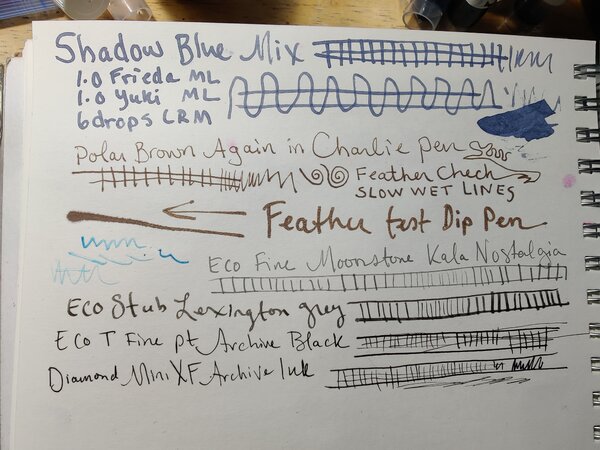 Shadow Blue Mix
1.0 Frieda ML
1.0 Yuki ML
6 drops LRM
Polar Brown Again in Charlie Pen Slow
Feather Chech
SLOW WET LINES
Feather test Dip Pen
Eco Fine Moonstone Kala Nostalgia
Eco Stub Lexington grey
Eco T Fine pt Archive Black
Diamond Mini XF Archive Ink